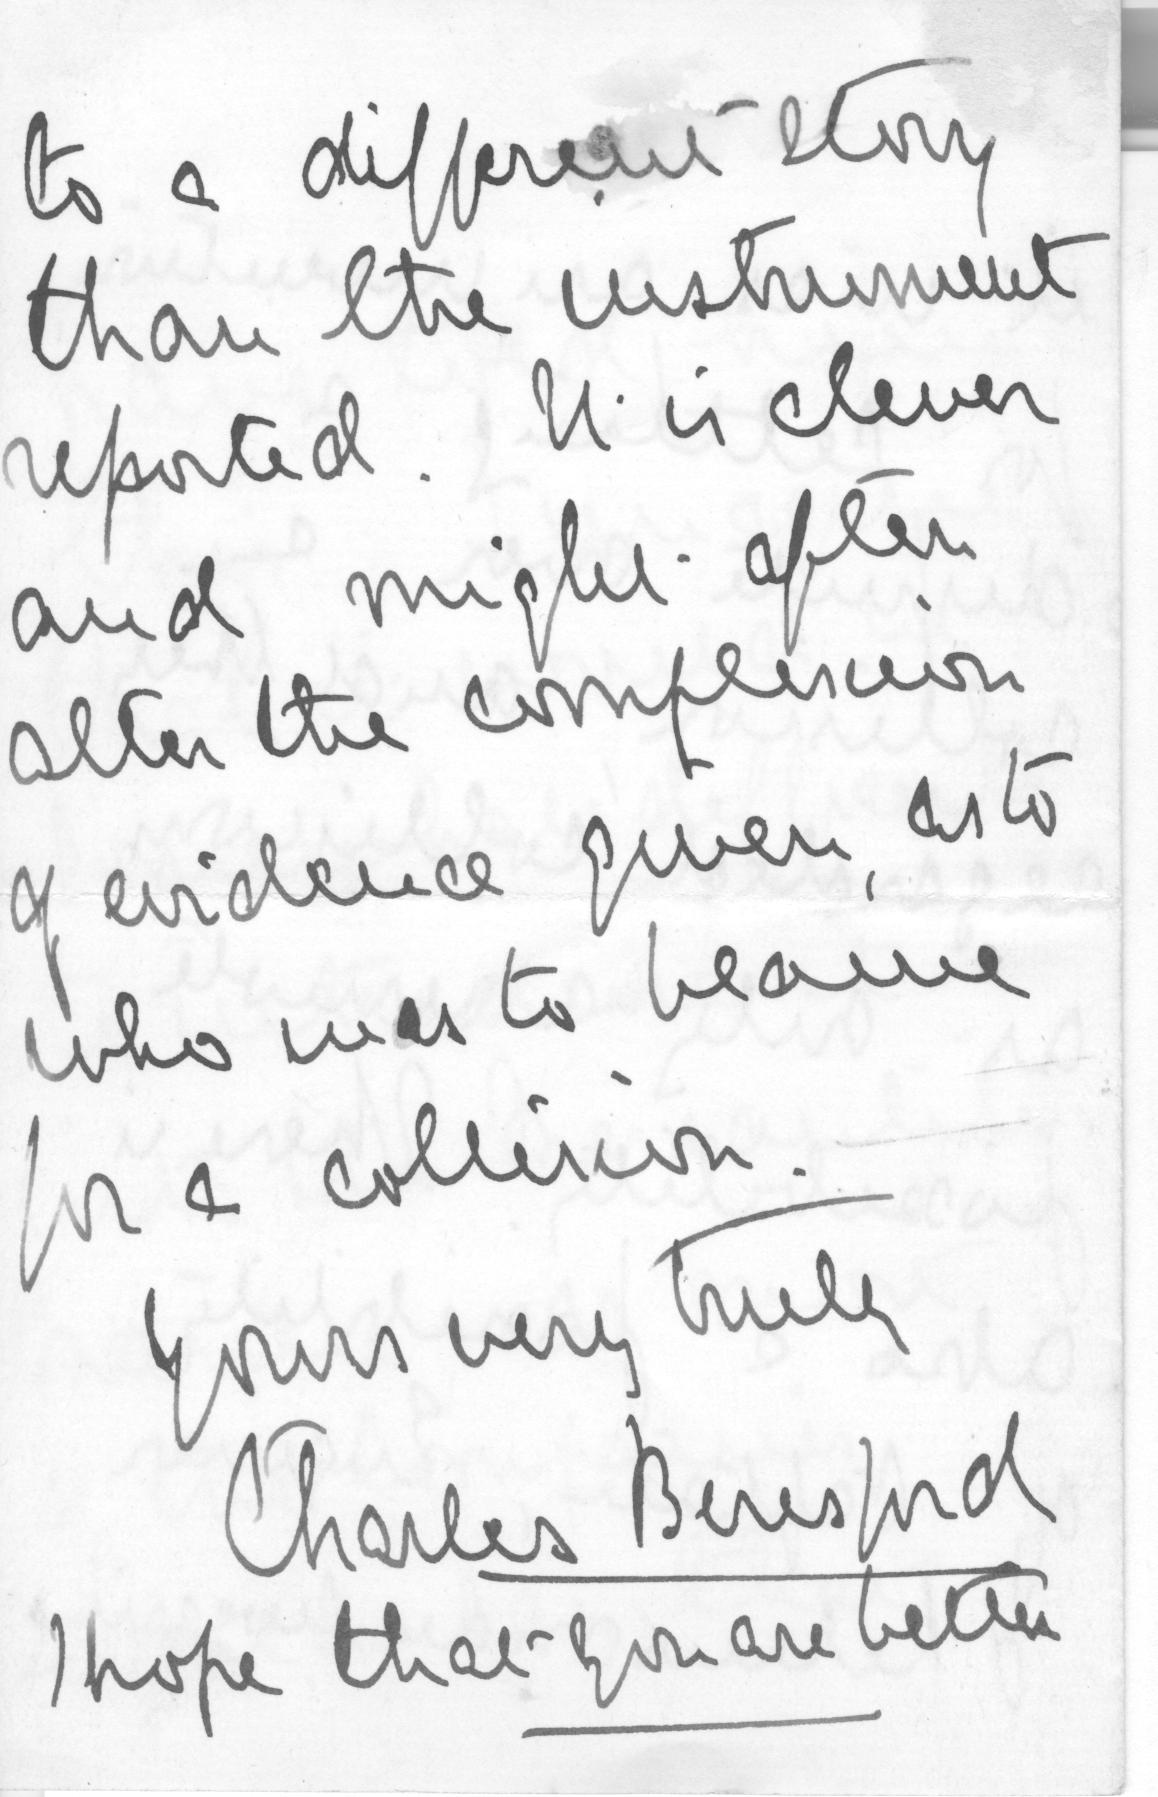 to a different story
than the instrument
reported. It is clever
and might often
alter the complexion
of evidence given, as to
who was to blame
for a collision.
Yours very truly
Charles Beresford
I hope that you are better